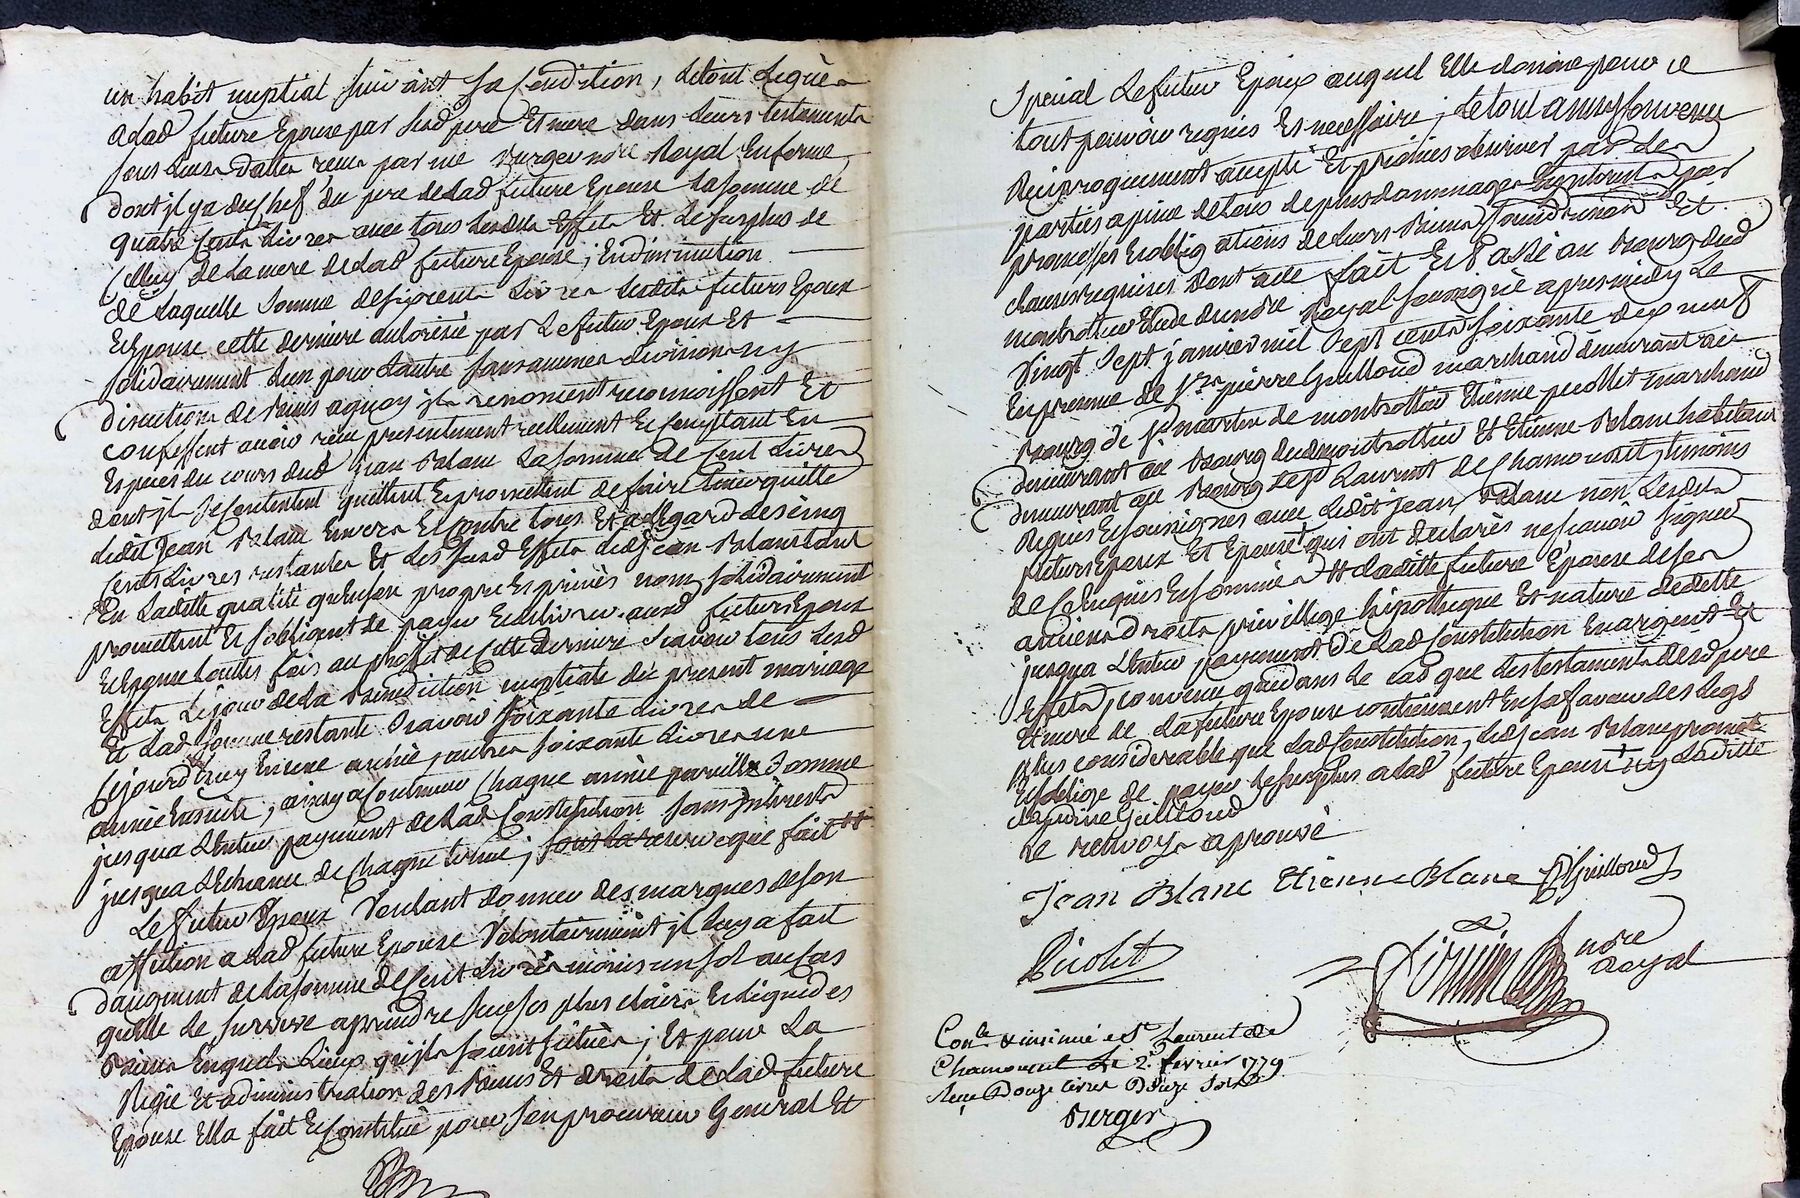 un habit nuptial suivant sa condition, letout leguès
a lad future Epouse par sesd pere Et mere dans leurs testaments
sous leurs dattes recus par me Berger nore Royal En forme
dont jl ya du chef du pere de lad future Epouse la somme de
quatre cents livres avec tous lesdits Effets Et le surplus de
celluy de la mere de lad future Epouse ; En diminution
de laquelle somme de six cents livres lesdits futurs Epoux
Et Epouse cette derniere autorisée par le futur Epoux Et
solidairement l'un pour l'autre sans aucunes divisions ny
discutions de biens aquoy jls renoncent reconnoissent Et
confessent avoir recu presentement reellement Et comptant En
Especes du cours dud jean Blanc la somme de cent livres
dont jls se contentent quittent Et promettent de faire tenir quitte
ledit Jean Blanc Envers Et contre tous Et a l'Egard des cinq
cents livres restantes Et des susd Effets led Jean Blanc tant
En laditte qualité qu'En son propre Et privé nom solidairement
promettent Et s'obligent de payer Et delivrer auxd futurs Epoux
Et Epouse toutes fois au proffit de cette derniere scavoir tous lesd
Effets le jour de la Benediction nuptiale du present mariage
Et lad somme restante scavoir soixante livres de
cejourd'huy En une année, autres soixante livres une
année Ensuite, ainsy a continuer chaque année pareille somme
jusqua l'Entier payement de lad Constitution sans jnterests
jusqua l'Echeance de chaque terme ; sous la reserve que fait ++
Le futur Epoux Voulant donner des marques de son
affection a lad future Epouse Volontairement jl luy a fait
d'augment de la somme de cent livres moins un sol au cas
quelle le survive aprendre sur ses plus clairs Et liquides
Biens En quels Lieux qu'jls soient situés ; Et pour La
Regie Et administration des Biens Et droits de lad future
Epouse Ella fait Et Constitué pour son procureur General Et
Special Le futur Epoux auquel Elle donne pour ce
tout pouvoir requis Et necessaire ; letout ainsy convenu
Reciproquement accepté Et promis observer par les
parties a peine de tous depens dommages Et jnterests par
promesses Et obligations de leurs Biens soumissions Et
clauses requises dont acte fait Et Passé au Bourg dud
montrottier Etude dunore Royal soussigné apres midy Le
Vingt Sept janvier mil Sept cents soixante dix neuf
En presence de Srs pierre Guilloud marchand demeurant au
Bourg de St martin de montrottier Etienne picollet marchand
demeurant au Bourg dud montrottier Et Etienne Blanc habitant
demeurant au Bourg de St Laurent de Chamousset temoins
Requis Et soussignés avec ledit jean Blanc non lesdits
futurs Epoux Et Epouse + qui ont declarés ne scavoir signer
de ce Enquis Et sommés ++ ladite future Epouse de ses
anciens droits privillege hipotheque Et nature de dette
jusqua l'Entier payement de lad Constitution En argent Et
Effets, convenu que dans le cas que les testaments desd pere
Et mere de la future Epouse contiennent En sa faveur des legs
plus considerable que lad Constitution, led jean Blanc promet
Et s'oblige de payer le surplus a lad future Epouse + ny laditte
Guilloud
Le renvoys aprouvé
Jean Blanc Etienne Blanc P Guilloud
Picolet
nore
Royal
Conlé & insinué a St Laurent de
Chamousset Le 2 fevrier 1779
Reçu Douze livres Douze sols
Berger